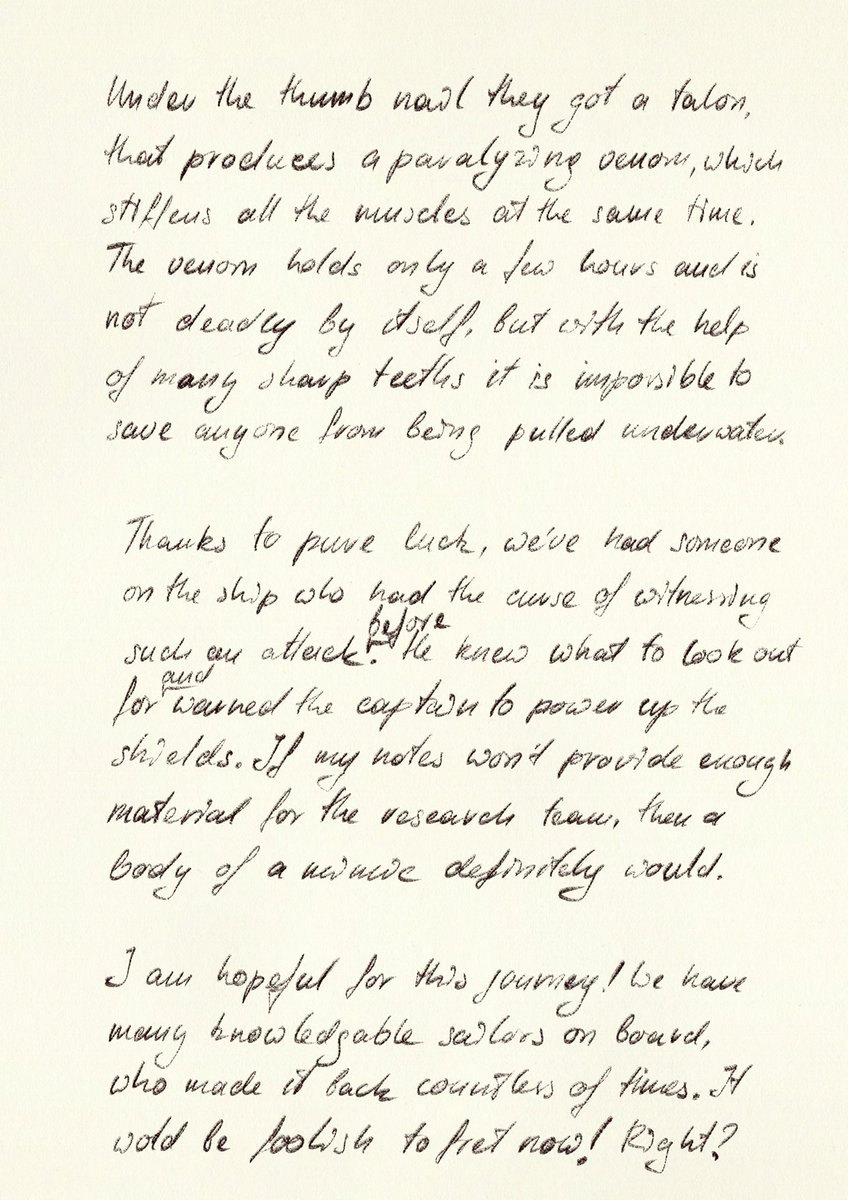 Under the thumb nail they got a talon,
that produces a paralyzing venom, which
stiffens all the muscles at the same time.
The venom holds only a few hours and is
not deadly by itself, but with the help
of many sharp teeths it is impossible to
save anyone from being pulled underwater.
Thanks to pure luck, we've had someone
on the ship who had the curse of witnessing
before
such an attack. He knew what to look out
and
for warned the captain to power up the
shields. If my notes won't provide enough
material for the research team, then a
body of a mimic definitely would.
I am hopeful for this journey! We have
many knowledgable sailors on board,
who made it back countless of times. It
wold be foolish to fret now! Right?